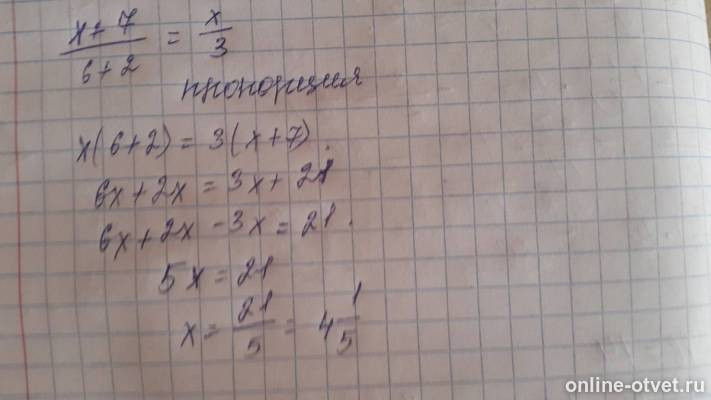 x+7/6+2 = x/3
пропорция
x(6+2) = 3(x+7).
6x+2x = 3x+21
6x+2x-3x=21.
5x=21
x= 21/5 = 4 1/5
online-otvet.ru